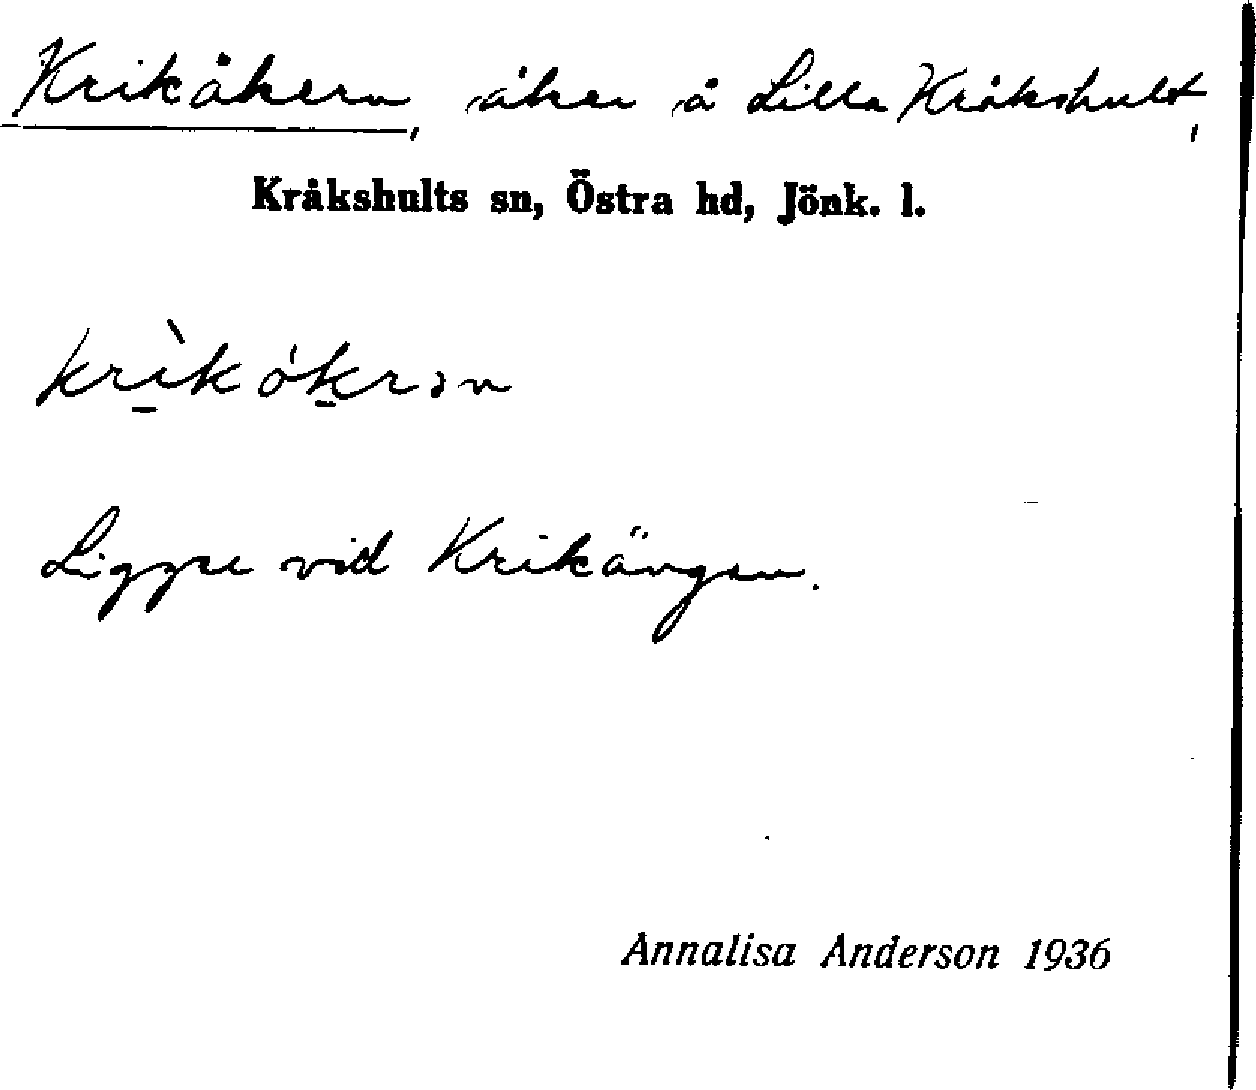 Krikåkern, åker å Lilla Kråkshult,
Kråkshults sn, Östra hd, Jönk. l.
krìkókrən
Ligger vid Krikängen.
Annalisa Anderson 1936